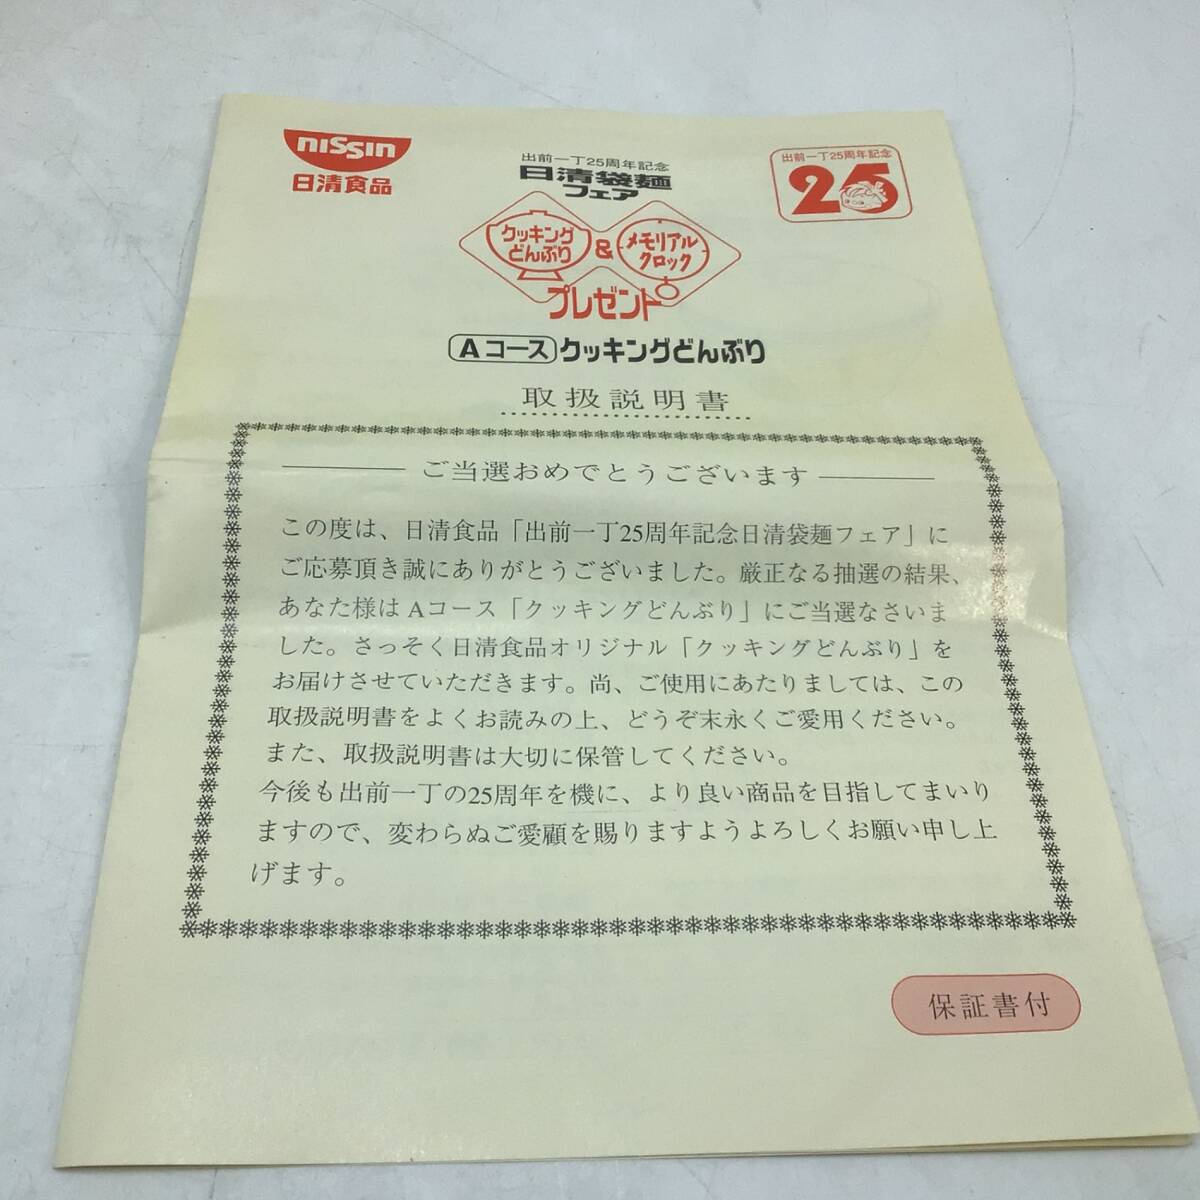 NISSIN
日清食品
出前一丁25周年記念
日清袋麺
フェア
クッキング
どんぶり
&
メモリアル
クロック
プレゼント
出前一丁25周年記念
25
Aコース クッキングどんぶり
取扱説明書
ご当選おめでとうございます
この度は、日清食品「出前一丁25周年記念日清袋麺フェア」に
ご応募頂き誠にありがとうございました。厳正なる抽選の結果、
あなた様はAコース「クッキングどんぶり」にご当選なさいま
した。さっそく日清食品オリジナル「クッキングどんぶり」を
お届けさせていただきます。尚、ご使用にあたりましては、この
取扱説明書をよくお読みの上、どうぞ末永くご愛用ください。
また、取扱説明書は大切に保管してください。
今後も出前一丁の25周年を機に、より良い商品を目指してまいり
ますので、変わらぬご愛顧を賜りますようよろしくお願い申し上
げます。
保証書付